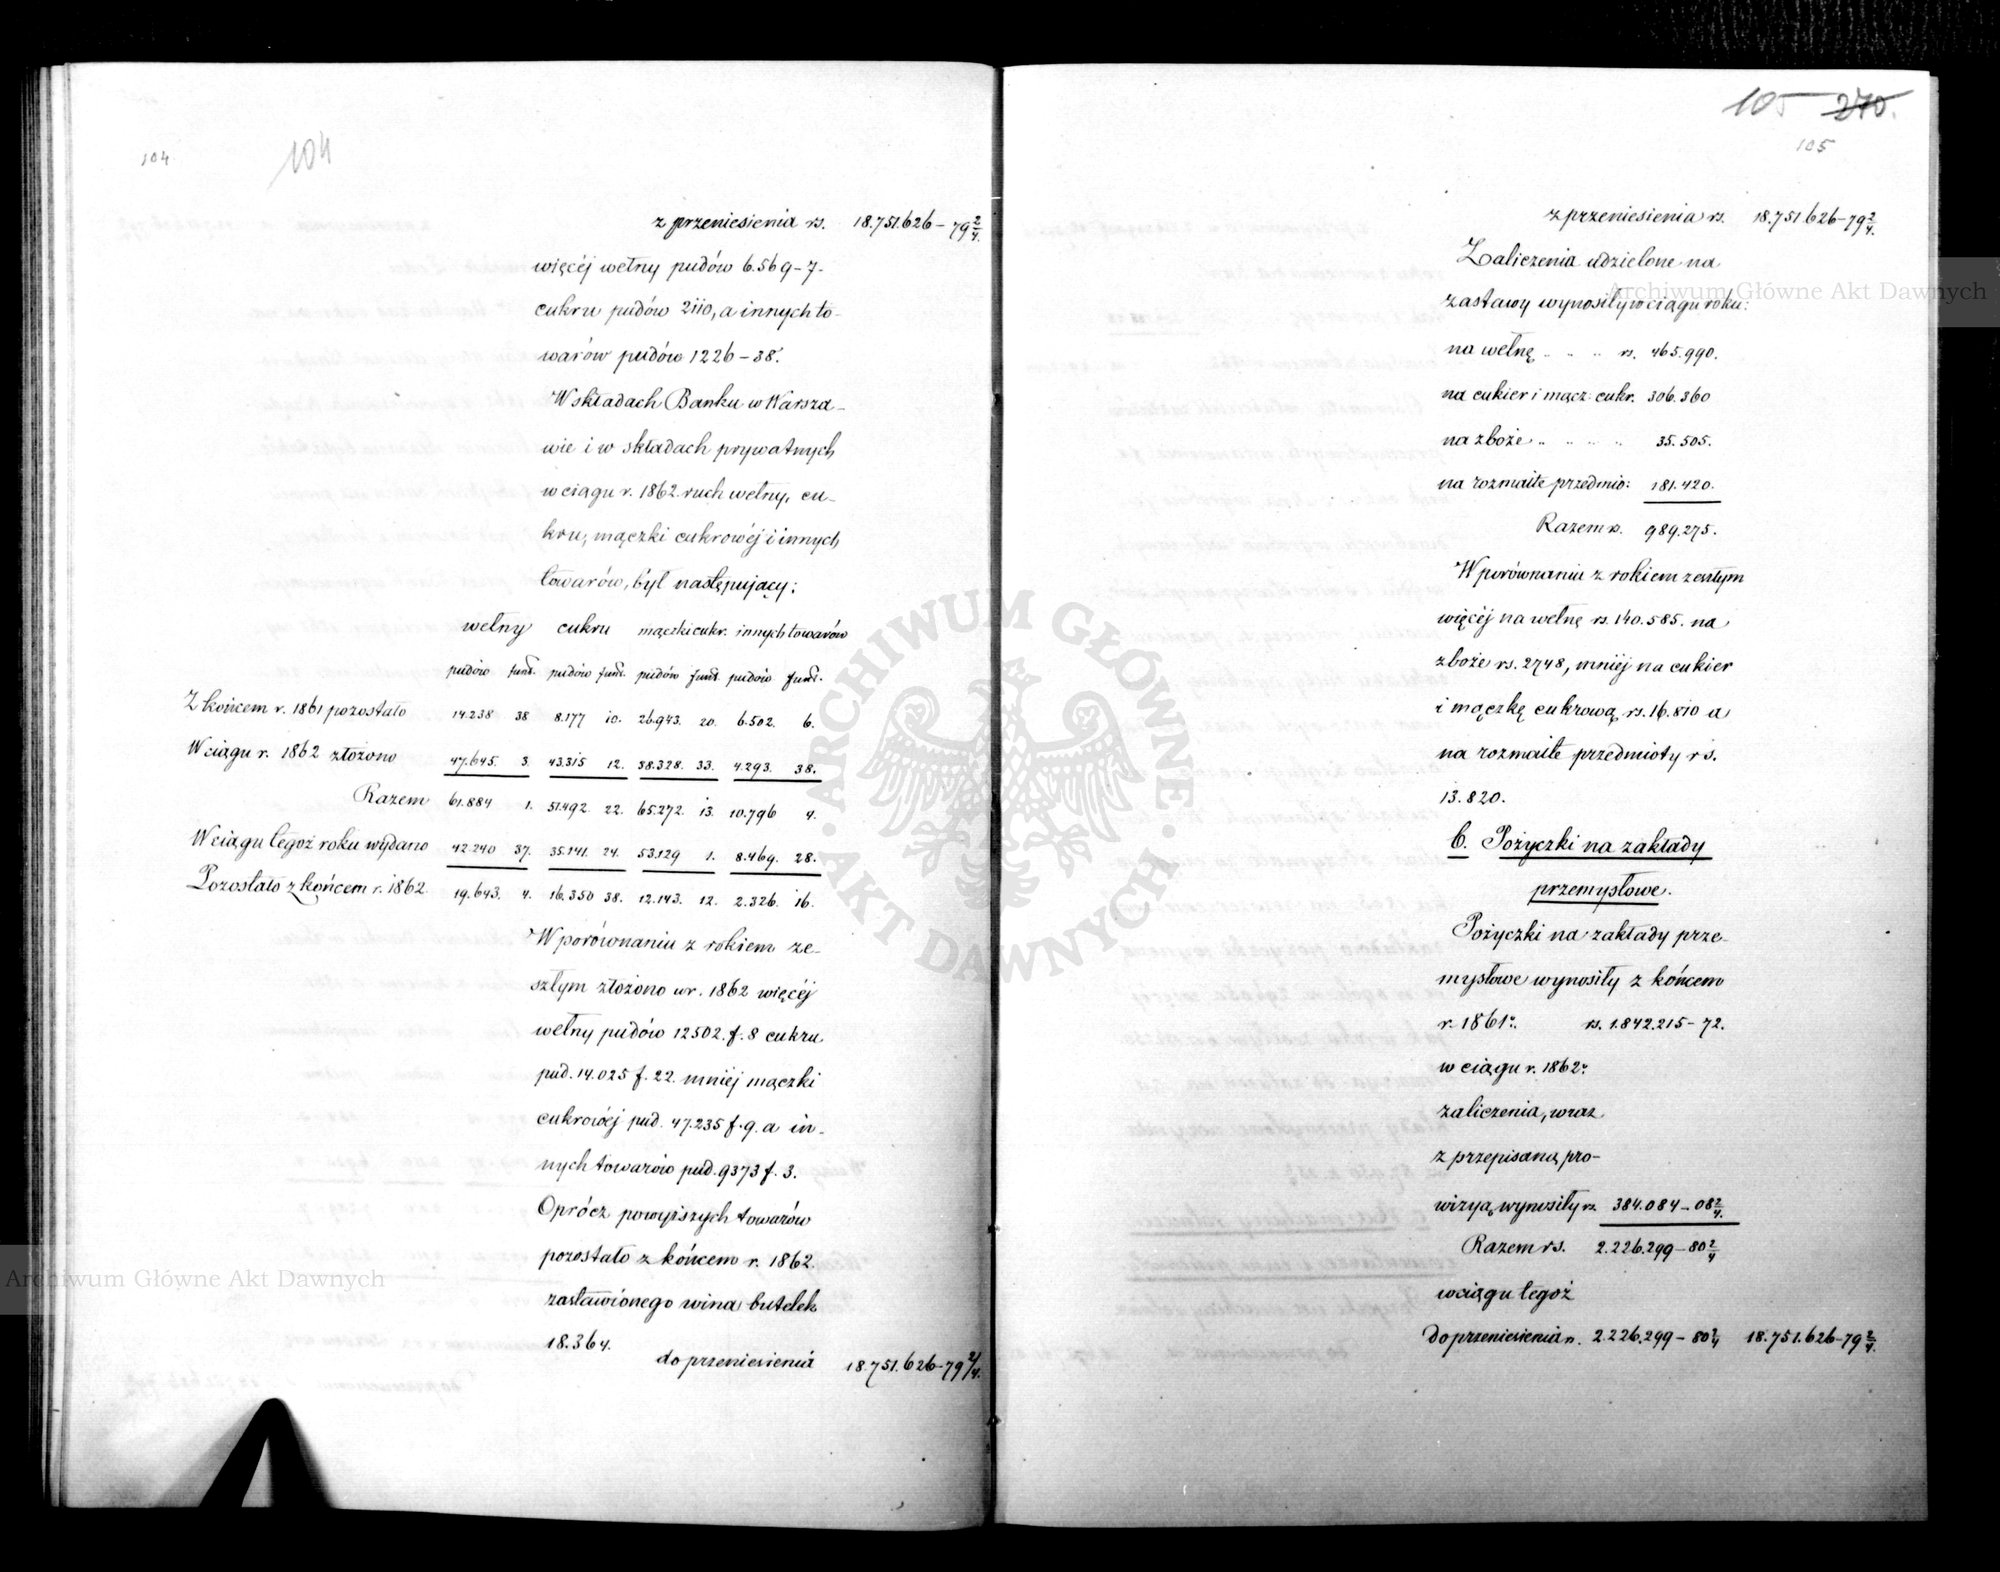 104
104
z przeniesienia rs. 18.751.626-79 2/4.
więcéj wełny pudów 6.569-7.
cukru pudów 2110, a innych to-
warów pudów 1226-38.
W składach Banku w Warsza-
wie i w składach prywatnych
w ciągu r. 1862. ruch wełny, cu-
kru, mączki cukrowéj i innych
towarów, był następujący:
wełny cukru mączki cukr. innych towarów
pudów funt. pudów funt. pudów funt. pudów funt.
Z końcem r. 1861 pozostało 14.238 38 8.177 10. 26.943. 20. 6.502. 6.
W ciągu r. 1862 złożono 47.645. 3. 43.315 12. 38.328. 33. 4.293. 38.
Razem 61.884 1. 51.492. 22. 65.272. 13. 10.796 4.
W ciągu tegoż roku wydano 42.240 37. 35.141. 24. 53.129 1. 8.469. 28.
Pozostało z końcem r. 1862 19.643. 4. 16.350 38. 12.143. 12. 2.326. 16.
W porównaniu z rokiem ze-
szłym złożono w r. 1862 więcéj
wełny pudów 12502. f. 8 cukru
pud. 14.025 f. 22. mniéj mączki
cukrowéj pud. 47.235 f. 9. a in-
nych towarów pud. 9373 f. 3.
Oprócz powyższych towarów
pozostało z końcem r. 1862.
zastawionego wina butelek
18.364.
do przeniesienia 18.751.626-79 2/4.
105 270.
105
z przeniesienia rs. 18.751.626-79 2/4.
Zaliczenia udzielone na
zastawy wynosiły w ciągu roku:
na wełnę .. .. .. rs. 465.990.
na cukier i mącz: cukr. 306.360
na zboże .. .. .. .. 35.505.
na rozmaite przedmio: 181.420.
Razem rs. 989.275.
W porównaniu z rokiem zeszłym
więcéj na wełnę rs. 140.585. na
zboże rs. 2748, mniéj na cukier
i mączkę cukrową rs. 16.810 a
na rozmaite przedmioty rs.
13.820.
b. Pożyczki na zakłady
przemysłowe.
Pożyczki na zakłady prze-
mysłowe wynosiły z końcem
r. 1861r. rs. 1.842.215-72.
w ciągu r. 1862r.
zaliczenia, wraz
z przepisaną pro-
wizyą wynosiły rs. 384.084-08 2/4.
Razem rs. 2.226.299-80 2/4
w ciągu tegoż
do przeniesienia rs. 2.226.299-80 2/4 18.751.626-79 2/4.
Archiwum Główne Akt Dawnych
Archiwum Główne Akt Dawnych
ARCHIWUM GŁÓWNE
AKT DAWNYCH